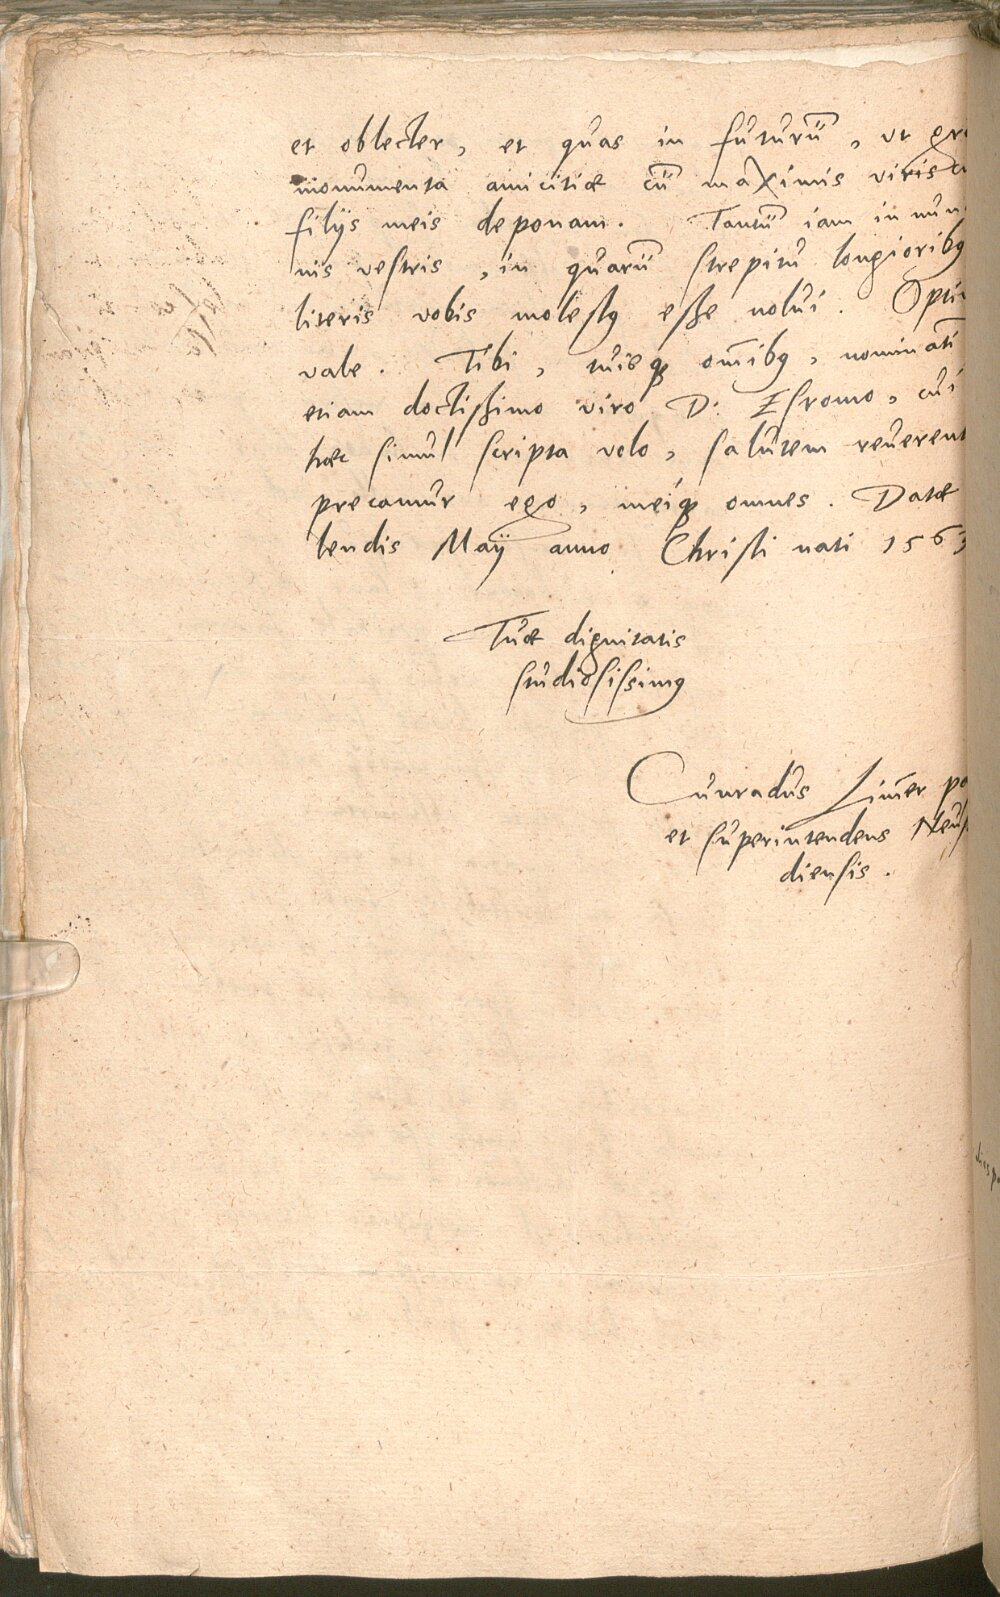 et oblecter, et quas in futurū, ut gra
monumenta amicitiæ cū maximis viris
filijs meis deponam. Tantū iam in nun
nis vestris, in quarū strepitu longiorib9
literis vobis molest9 eße nolui. Opti
vale. Tibi, tuisq3 omīb9, nominatī
etiam doctißimo viro D: Esromo, cui
hæc simul scripta volo, salutem reuerent
precamur ego, meiq3 omnes. Datæ
lendis Maij anno Christi nati 1563
Tuæ dignitatis
studiosissim9
Cunradus Lim̄er pa
et superintendens Neus
diensis.